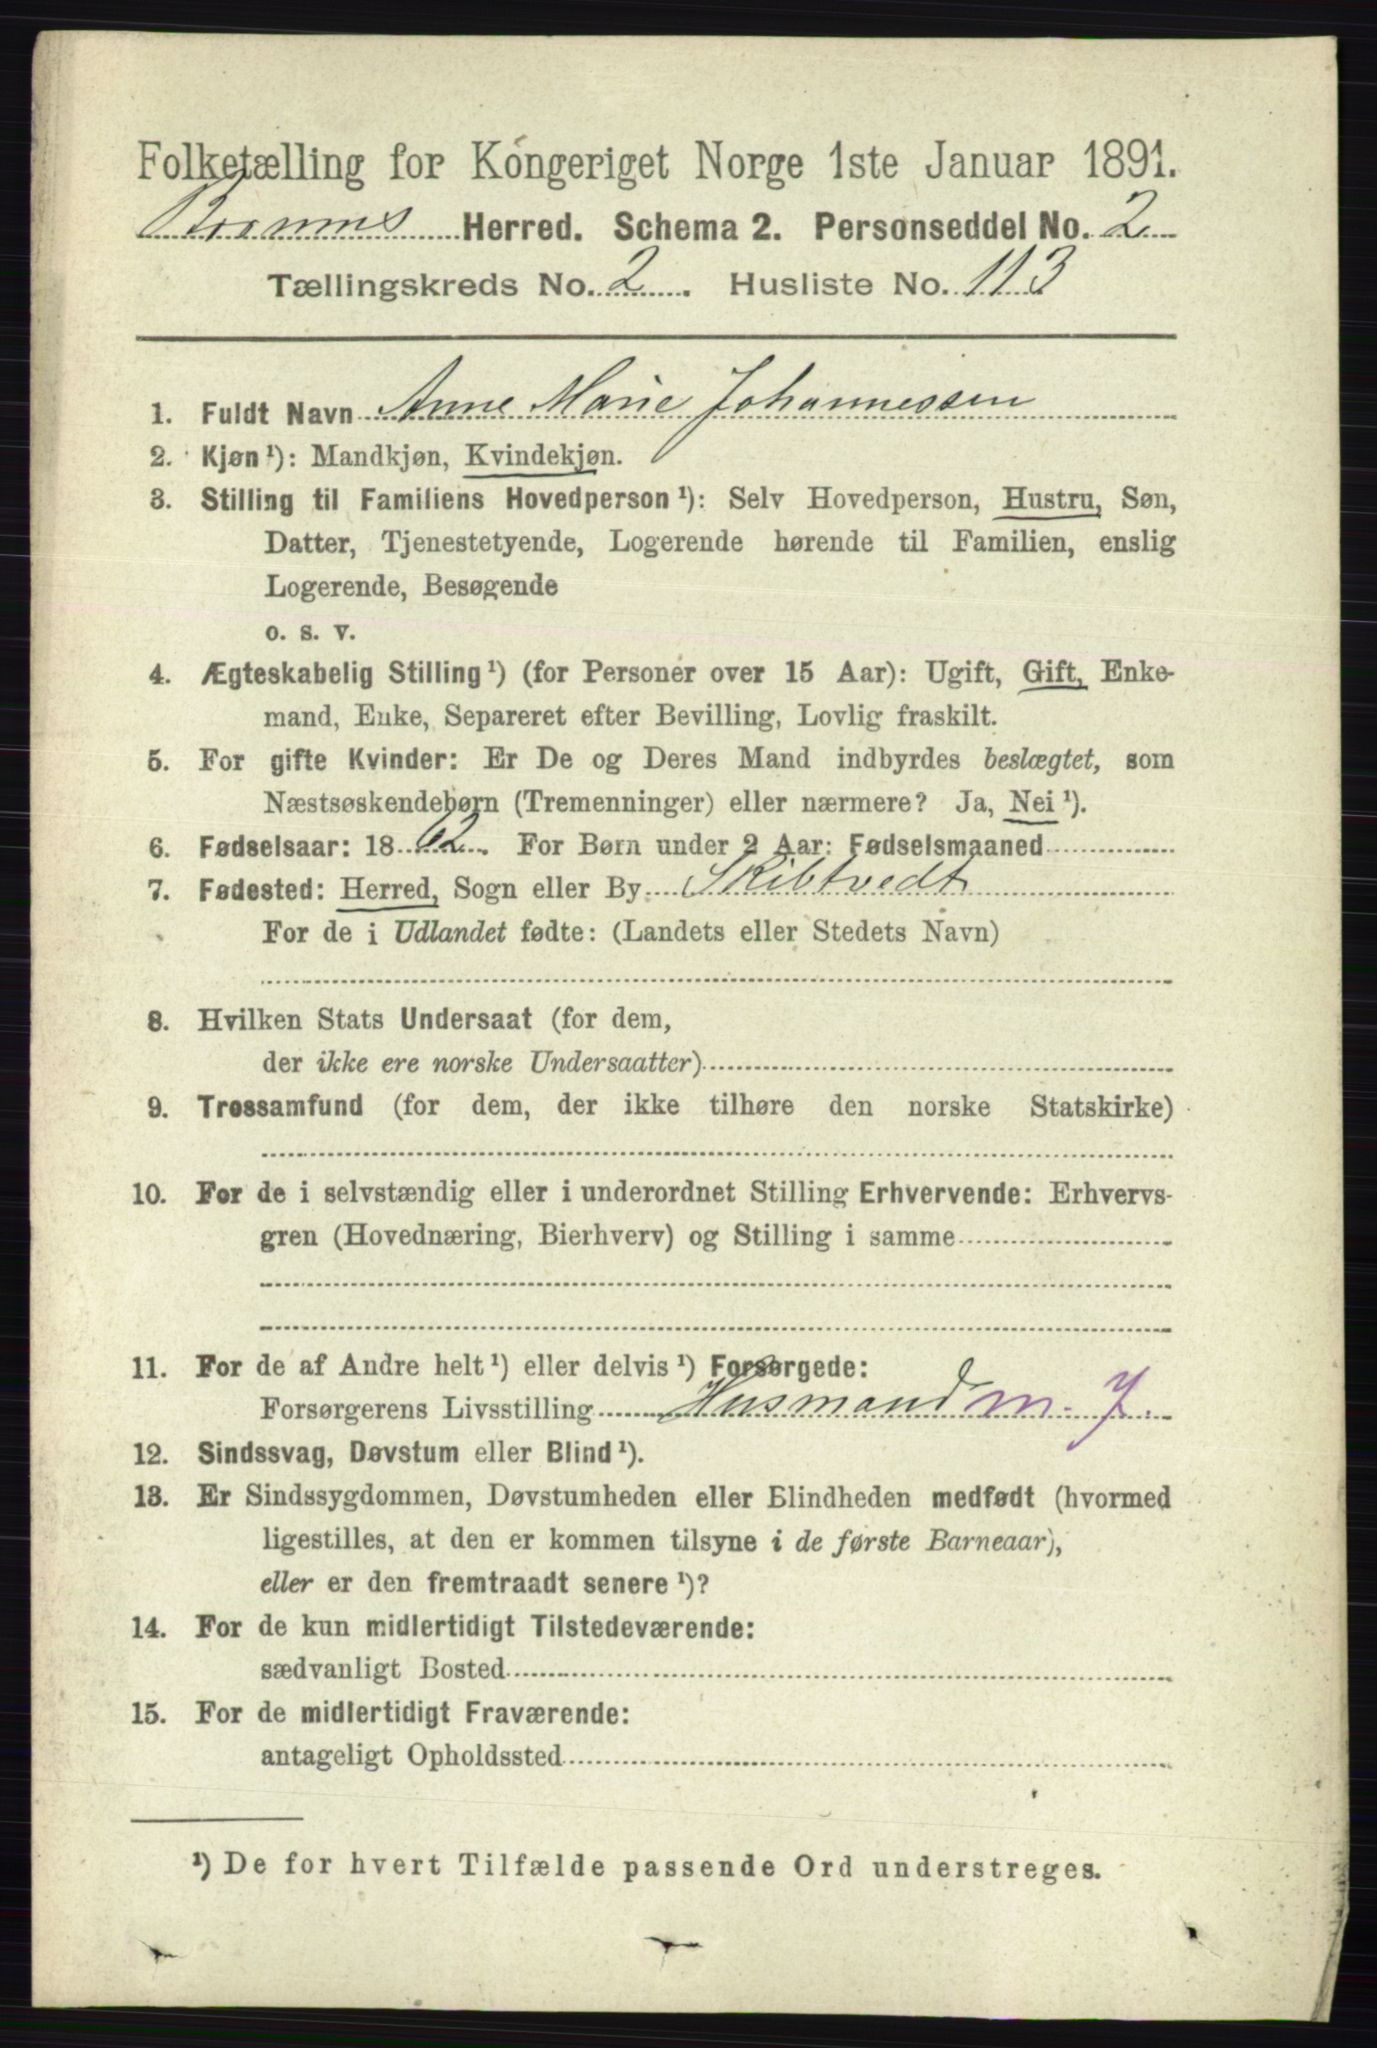 Folketælling for Kongeriget Norge 1ste Januar 1891.
Herred. Schema 2. Personseddel No. 2
Tællingskreds No. 2. Husliste No. 113
1. Fuldt Navn Anne Marie Johannessen
2. Kjøn ¹): Mandkjøn, Kvindekjøn.
3. Stilling til Familiens Hovedperson ¹): Selv Hovedperson, Hustru, Søn,
Datter, Tjenestetyende, Logerende hørende til Familien, enslig
Logerende, Besøgende
o. s. v.
4. Ægteskabelig Stilling ¹) (for Personer over 15 Aar): Ugift, Gift, Enke-
mand, Enke, Separeret efter Bevilling, Lovlig fraskilt.
5. For gifte Kvinder: Er De og Deres Mand indbyrdes beslægtet, som
Næstsøskendebørn (Tremenninger) eller nærmere? Ja, Nei ¹).
6. Fødselsaar: 1862. For Børn under 2 Aar: Fødselsmaaned
7. Fødested: Herred, Sogn eller By Skibtvedt
For de i Udlandet fødte: (Landets eller Stedets Navn)
8. Hvilken Stats Undersaat (for dem,
der ikke ere norske Undersaatter)
9. Trossamfund (for dem, der ikke tilhøre den norske Statskirke)
10. For de i selvstændig eller i underordnet Stilling Erhvervende: Erhvervs-
gren (Hovednæring, Bierhverv) og Stilling i samme
11. For de af Andre helt ¹) eller delvis ¹) Forsørgede:
Forsørgerens Livsstilling Husmand m. J.
12. Sindssvag, Døvstum eller Blind ¹).
13. Er Sindssygdommen, Døvstumheden eller Blindheden medfødt (hvormed
ligestilles, at den er kommen tilsyne i de første Barneaar),
eller er den fremtraadt senere ¹)?
14. For de kun midlertidigt Tilstedeværende:
sædvanligt Bosted
15. For de midlertidigt Fraværende:
antageligt Opholdssted
¹) De for hvert Tilfælde passende Ord understreges.